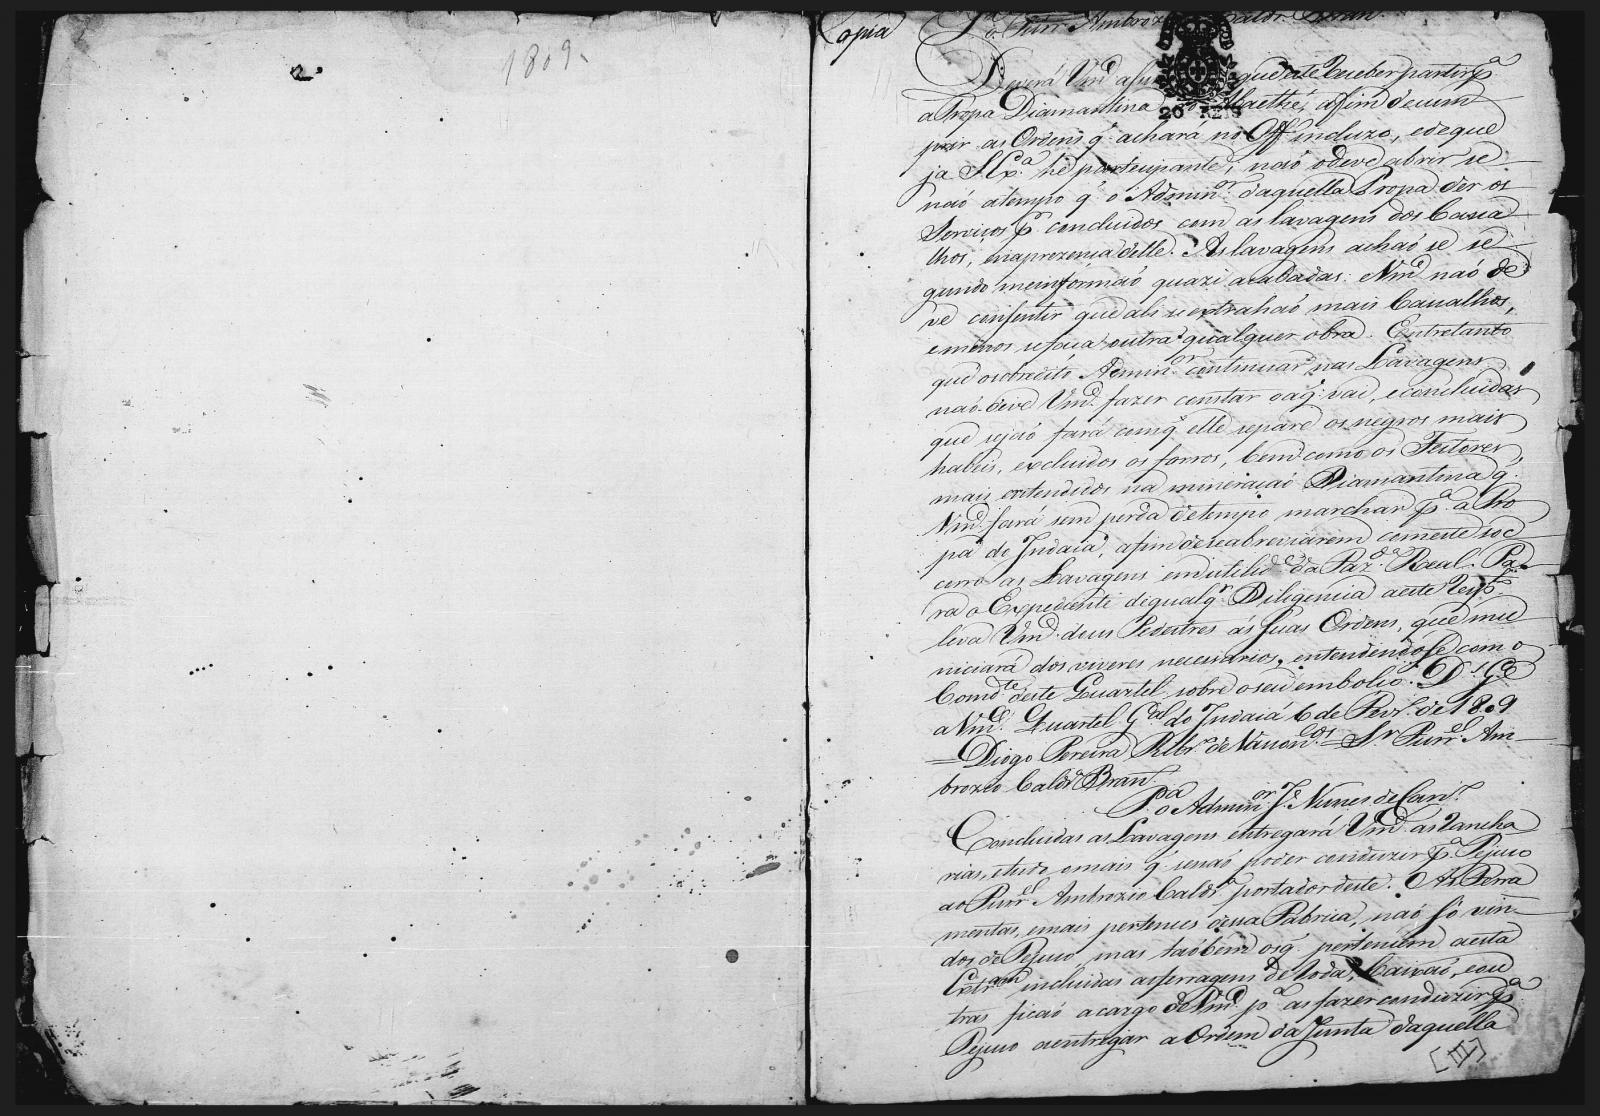 1809.
Copia P.ª o Furr.el Ambrozio Cald.ª Bran.
Deverá Vm.ce que este receber partir p.ª
a Tropa Diamantina do Abaethé, afim de cum
prir as Ordens q. achará no Off.º incluzo, e de que
ja S. Ex.ª hé participante; naõ o deve abrir se
naõ a tempo q. o Admin.or daquella Tropa der os
Serviços p.r concluidos com as lavagens dos Casca
lhos, em a prezença delle. As lavagens achaõ se se
gundo me informaõ quazi acabadas. Vm.ce naõ de
ve consentir que ali se extrahaõ mais Cascalhos,
e menos se faça outra qualquer obra. Entretanto
que o sobredito Admin.or continuar nas Lavagens
naõ deve Vm.ce fazer constar o a q. vai, e concluidas
que sejaõ fará com q. elle separe os negros mais
habeis, excluidos os forros, bem como os Feitores
mais entendidos na mineraçaõ Diamantina q.
Vm.ce fará sem perda de tempo marchar p.ª a Tro
pa do Indaiá, afim de se abreviarem com este soc
corro as Lavagens em utilid.e da Faz.da Real. Pa
ra o Expediente de qualq.r Diligencia a este resp.to
leva Vm.ce dous Pedestres ás suas Ordens, que mu
niciará dos viveres necessarios, entendendo se com o
Com.te deste Quartel sobre o seu embolço. D.s G.e
a Vm.ce Quartel G.al do Indaiá 6 de Fev.ro de 1809
= Diogo Pereira Ribr.º de Vascon.cos = Sr. Furr.el Am
brozio Cald.ª Bran.
P.ª o Admin.or J.e Nunes de Carv.º
Concluidas as Lavagens entregará Vm.ce as Rancha
rias, e tudo o mais q. se naõ poder conduzir p.ª Tejuco
ao Furr.el Ambrozio Cald.ª portador deste. As Ferra
mentas, e mais pertences dessa Fabrica, naõ só vin
dos de Tejuco, mas taõbem os q. pertencem a esta
Extr.am incluidas as ferragens de Roda, Caixaõ, e ou
tras ficaõ a cargo de Vm.ce p.ª as fazer conduzir p.ª
Tejuco a entregar a Ordem da Junta daquella
20 REIS
[III]